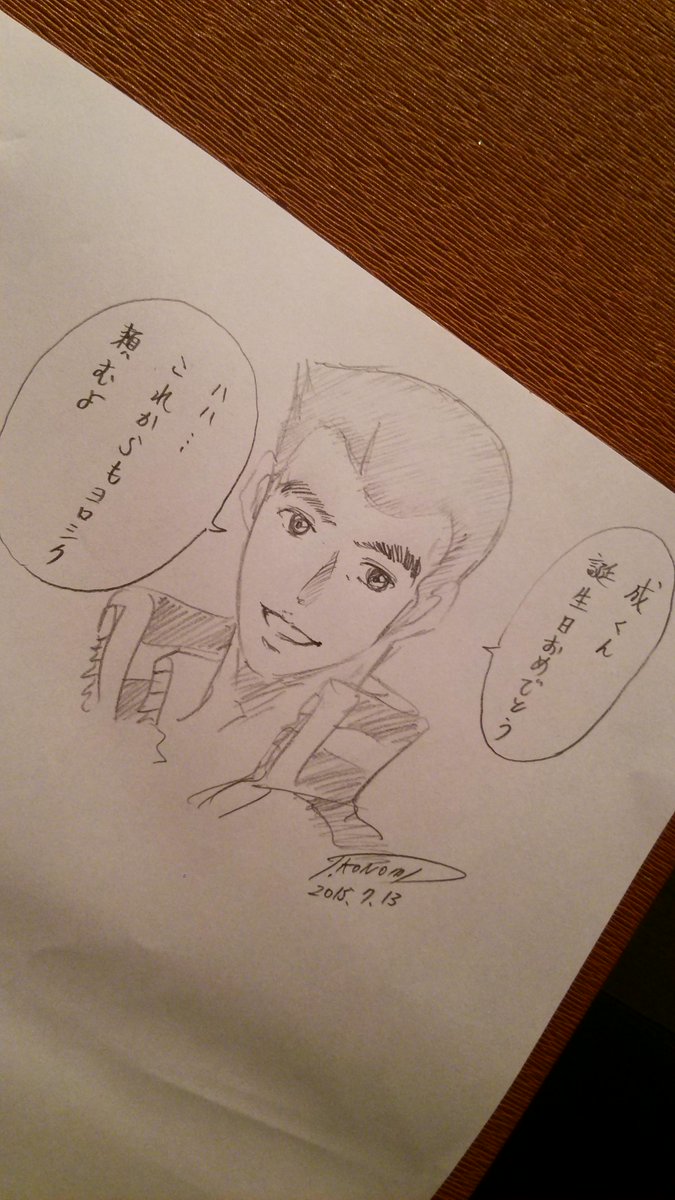 成くん
誕生日おめでとう
ハハ…
これからもヨロシク
頼むよ
T.KONOMI
2015.7.13